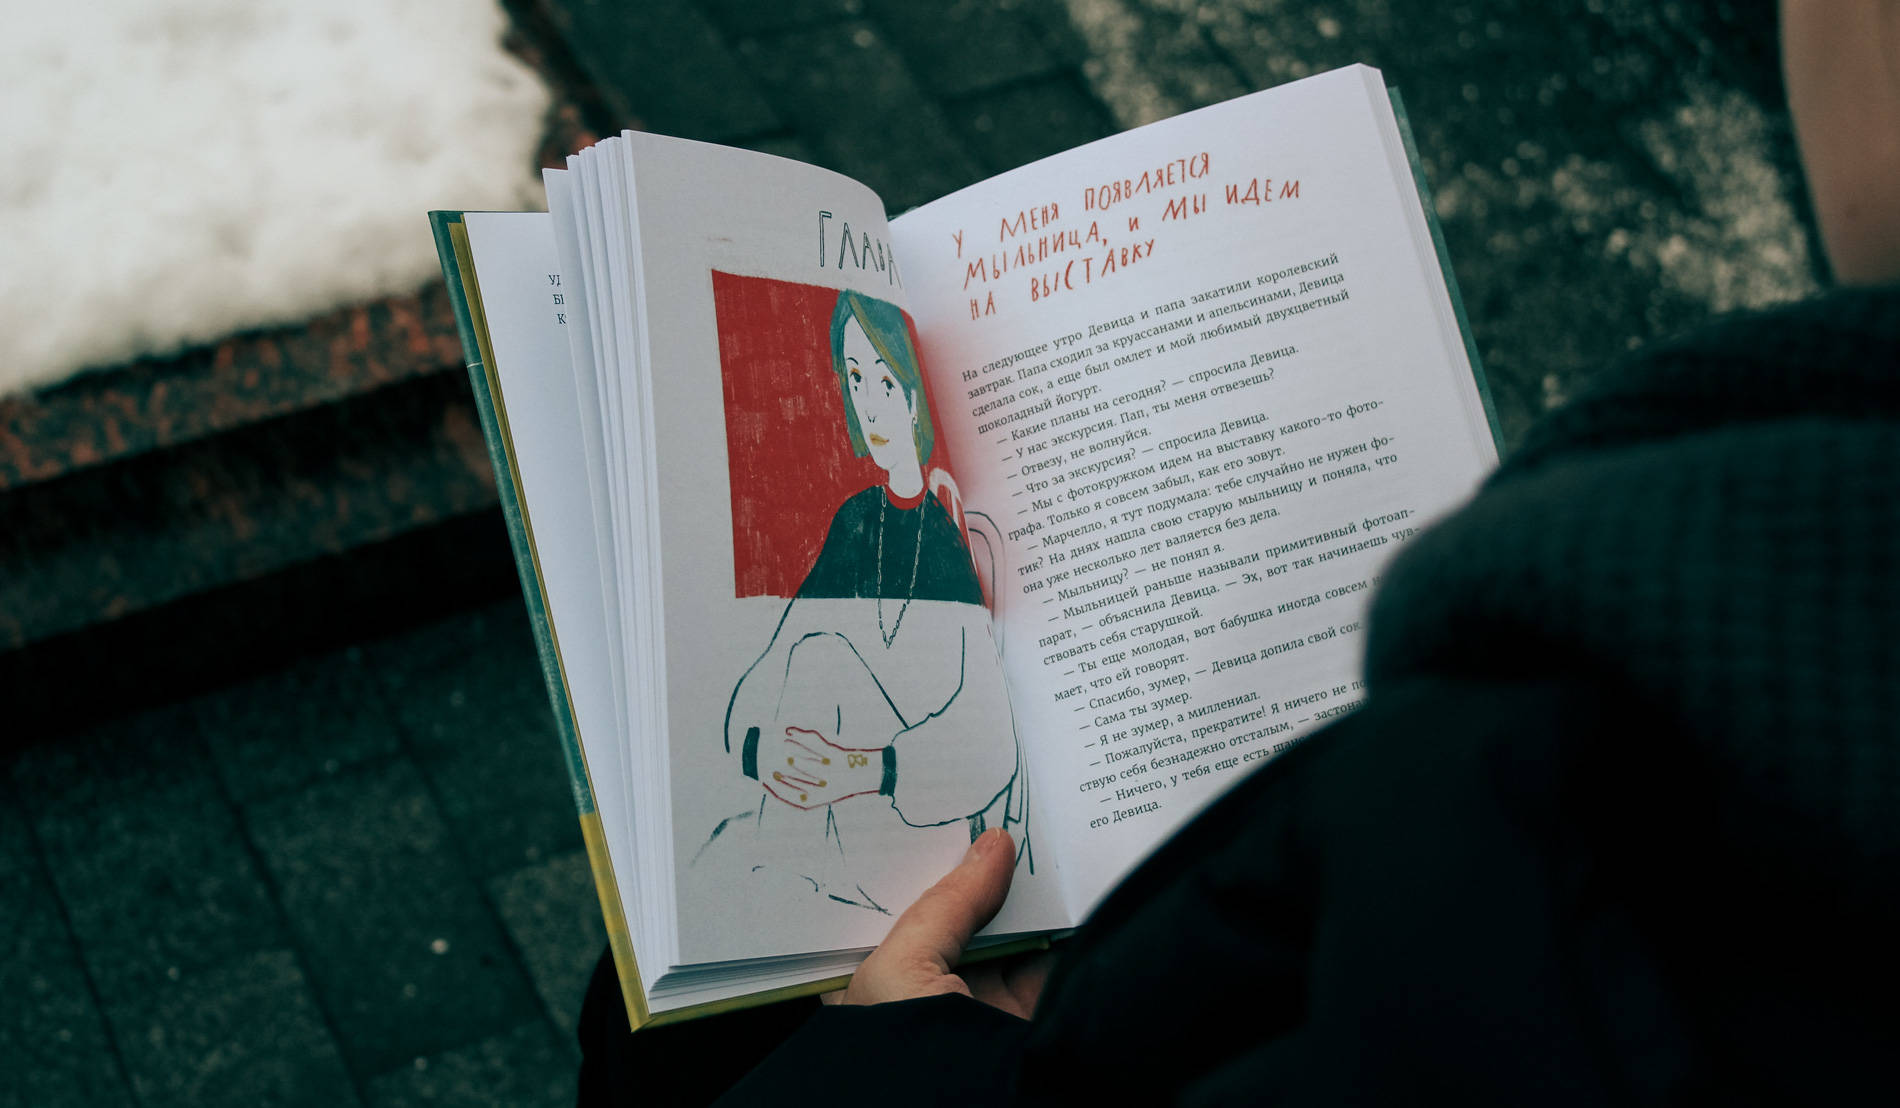 ГЛАВА
У МЕНЯ ПОЯВЛЯЕТСЯ
МЫЛЬНИЦА, И МЫ ИДЕМ
НА ВЫСТАВКУ
На следующее утро Девица и папа закатили королевский
завтрак. Папа сходил за круассанами и апельсинами, Девица
сделала сок, а еще был омлет и мой любимый двухцветный
шоколадный йогурт.
— Какие планы на сегодня? — спросила Девица.
— У нас экскурсия. Пап, ты меня отвезешь?
— Отвезу, не волнуйся.
— Что за экскурсия? — спросила Девица.
— Мы с фотокружком идем на выставку какого-то фото-
графа. Только я совсем забыл, как его зовут.
— Марчелло, я тут подумала: тебе случайно не нужен фо-
тик? На днях нашла свою старую мыльницу и поняла, что
она уже несколько лет валяется без дела.
— Мыльницу? — не понял я.
— Мыльницей раньше называли примитивный фотоап-
парат, — объяснила Девица. — Эх, вот так начинаешь чув-
ствовать себя старушкой.
— Ты еще молодая, вот бабушка иногда совсем
мает, что ей говорят.
— Спасибо, зумер, — Девица допила свой сок.
— Сама ты зумер.
— Я не зумер, а миллениал.
— Пожалуйста, прекратите! Я ничего не
ствую себя безнадежно отсталым, —
— Ничего, у тебя еще есть
его Девица.